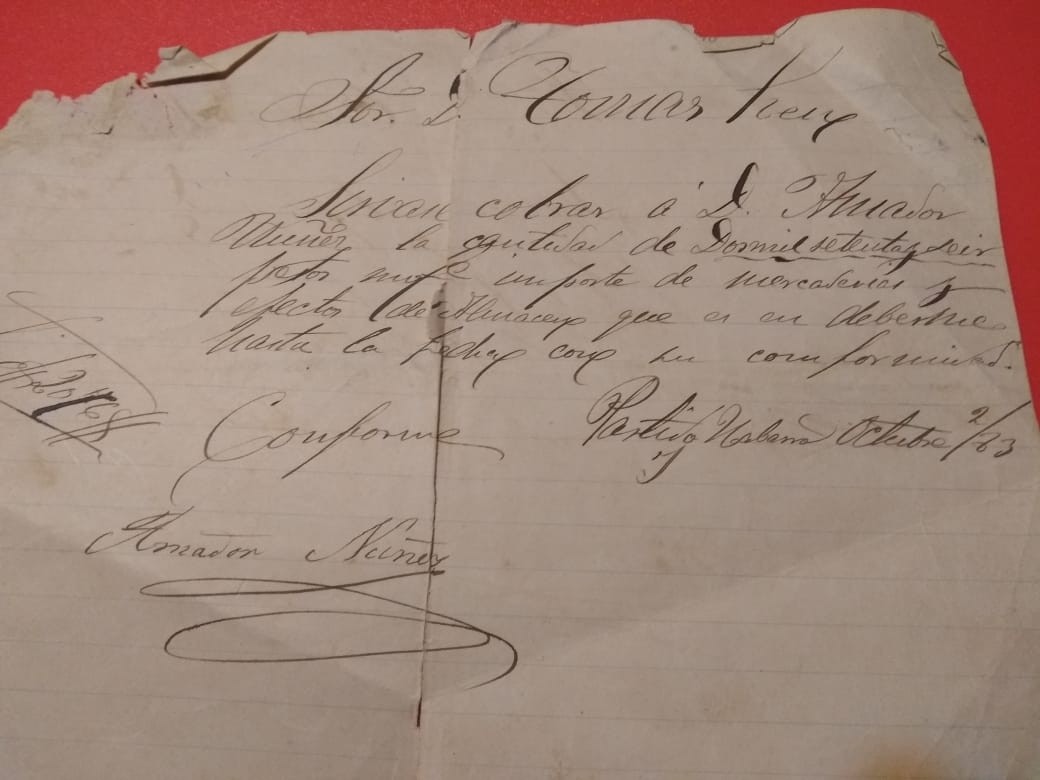 Sor. D. Tomas
Sirvase cobrar á D. Amador
Nuñez la cantidad de Dosmil setenta y seis
pesos importe de mercaderias y
efectos de Almacen que es en deberme
hasta la fecha con su conformidad.
Partido Urbano Octubre 2/83
Conforme
Amador Nuñez